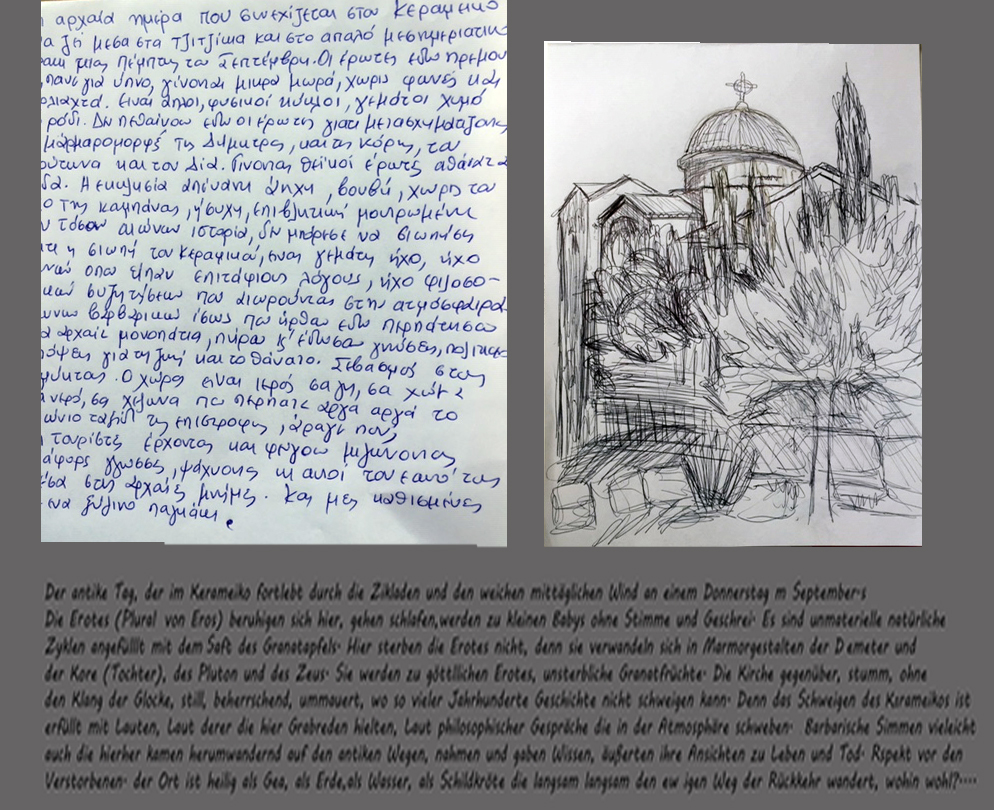 αρχαία ημέρα που συνεχίζεται στον Κεραμεικό
ζει μέσα στα τζιτζίκια και στο απαλό μεσημεριατικο
μιας Πέμπτης του Σεπτέμβρη. Οι έρωτες εδώ ηρεμουν
πανε για ύπνο, γίνονται μικρά μωρά, χωρίς φωνές και
είναι άυλοι, φυσικοί κύκλοι, γεμάτοι χυμό
ρόδι. Δεν πεθαίνουν εδώ οι έρωτες γιατί μετασχηματίζονται
της Δήμητρας, και της κόρης, του
και του Δία. Γίνονται θεϊκοί έρωτες αθάνατα
Η εκκλησία απέναντι βουβή, χωρίς τον
ο της καμπάνας, ήσυχη, επιβλητική
τόσων αιώνων ιστορία, δεν μπόρεσε να σιωπήσει
η σιωπή του Κεραμικού, είναι γεμάτη ήχο, ήχο
που είπαν επιτάφιους λόγους, ήχο φιλοσο-
συζητήσεων που αιωρούνται στην ατμόσφαιρα
βαρβαρικών ίσως που ήρθαν εδώ περπάτησαν
αρχαία μονοπάτια, πήραν κ' έδωσαν γνώσεις,
για τη ζωή και το θάνατο. Σεβασμός στους
Ο χώρος είναι ιερός σα γη, σα χώμα
νερό, σα χελώνα που περπατά αργά αργά το
ώνιο ταξίδι της επιστροφής, άραγε που;
τουρίστες έρχονται και φεύγουν μιλώντας
γλώσσες, ψάχνοντας κι αυτοί τον εαυτό τους
στις αρχαίες μνήμες. Και μεις καθισμένες
ένα ξύλινο παγκάκι.
Der antike Tag, der im Kerameiko fortlebt durch die Zikladen und den weichen mittäglichen Wind an einem Donnerstag m September·s
Die Erotes (Plural von Eros) beruhigen sich hier, gehen schlafen,werden zu kleinen Babys ohne Stimme und Geschrei· Es sind unmaterielle natürliche
Zyklen angefülllt mit dem Saft des Granatapfels· Hier sterben die Erotes nicht, denn sie verwandeln sich in Marmorgestalten der D emeter und
der Kore (Tochter), des Pluton und des Zeus· Sie werden zu göttllichen Erotes, unsterbliche Granatfrüchte· Die Kirche gegenüber, stumm, ohne
den Klang der Glocke, still, beherrschend, ummauert, wo so vieler Jahrhunderte Geschichte nicht schweigen kann· Denn das Schweigen des Kerameikos ist
erfüllt mit Lauten, Laut derer die hier Grabreden hielten, Laut philosophischer Gespräche die in der Atmosphäre schweben· Barbarische Simmen vieleicht
auch die hierher kamen herumwandernd auf den antiken Wegen, nahmen und gaben Wissen, äußerten ihre Ansichten zu Leben und Tod· Rspekt vor den
Verstorbenen· der Ort ist heilig als Gea, als Erde,als Wasser, als Schildkröte die langsam langsam den ew igen Weg der Rückkehr wandert, wohin wohl?····